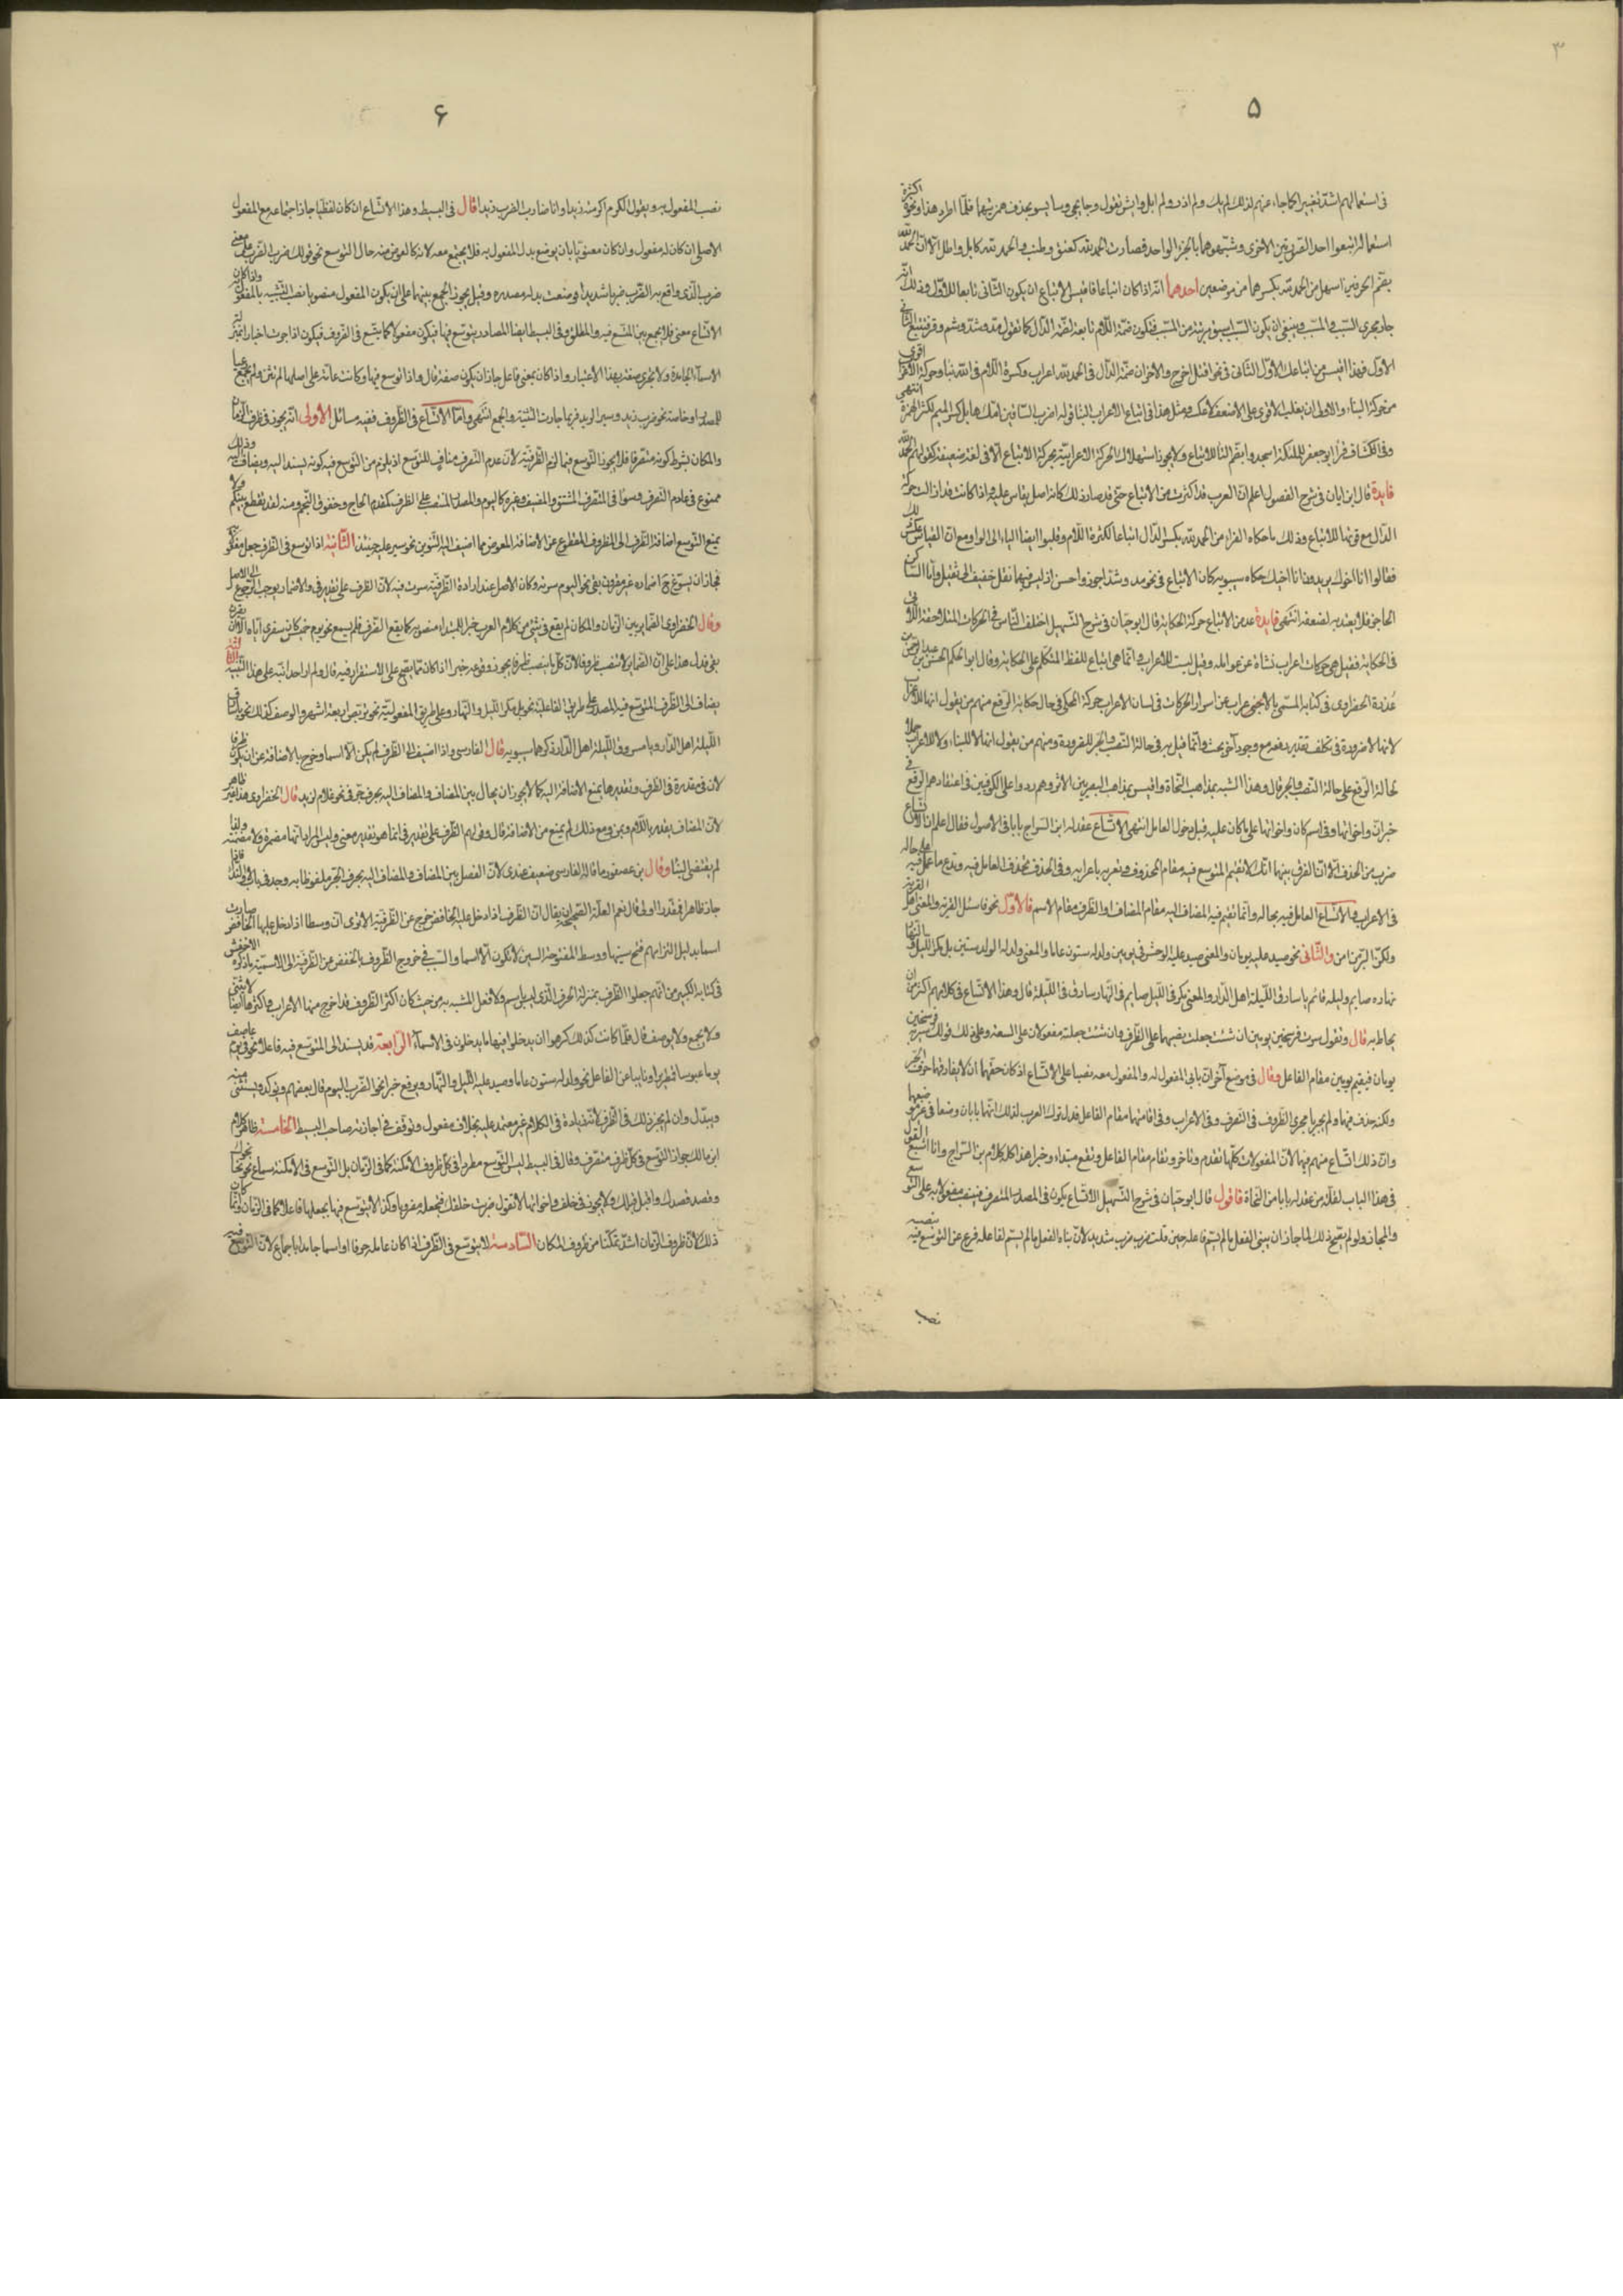 ٣
٥
فى استعمالهم اشدّ تغييرا كما جاء عنهم لذلك لم يك ولم ادر ولم ابل وايش تقول وجا يجى وسا يسو بحذف همزتيهما فلمّا اطرد هذا ونحوه اكثرة
استعماله اتبعوا احد الصوتين الاخرى وشبّهوهما بالجزء الواحد فصارت الحمد لله كعنق وطنب والحمد لله كابل واطل الّا انّ الحمد لله
بضمّ الحرفين اسهل من الحمد لله بكسرهما من موضعين احدهما انّه اذا كان اتباعا فاقيس الاتباع ان يكون الثّانى تابعا للاوّل وذلك انّه
جار مجرى السّبب والمسّبب وينبغى ان يكون السّبب اسبق رتبة من المسّبب فتكون ضمّة اللّام تابعة لضمّة الدّال كما تقول مدّ وشدّ وشم وفر فتتبع الثّانى
الاوّل فهذا اقيس من اتباعك الاوّل الثّانى فى نحو اقتل اخرج والاخر ان ضمّة الدّال فى الحمد لله اعراب وكسرة اللّام فى لله بناء وحركة الاعراب اقوى
من حركة البناء والاولى ان يغلب الاقوى على الاضعف لا عكسه ومثل هذا فى اتباع الاعراب البناء قوله اضرب السّاقين امّك هابل كسر الميم لكسر الهمزة انتهى
وفى الكشّاف قرا ابو جعفر للملئكة اسجدوا بضمّ التّا للاتباع ولا يجوز استهلاك الحركة الاعرابيّة بحركة الاتباع الّا فى لغة ضعيفة كقولهم الحمد لله
فايدة قال ابن اياز فى شرح الفصول اعلم انّ العرب قد اكثرت من الاتباع حتّى قد صار ذلك كانه اصل يقاس عليه واذا كانت قد زالت حركة
الدّال مع قوّتها للاتباع وذلك ما حكاه الفراء من الحمد لله بكسر الدّال اتباعا لكسرة اللّام وقلبوا ايضا الياء الى الواو مع انّ القياس عكس ذلك
فقالوا انا اخوك يريدون انا اخيك حكاه سيبويه كان الاتباع فى نحو مد وشد اجوز واحسن اذ ليس فيهما نقل خفيف الى ثقيل وامّا السّاكن
الحاجز فلا يعتد به لضعفه انتهى فايدة عد من الاتباع حركة الحكاية قال ابو حيّان فى شرح التّسهيل اختلف النّاس فى الحركات اللّاحقة لاى
فى الحكاية فقيل هى حركات اعراب نشاة عن عوامله وقيل ليست للاعراب وانّما هى اتباع للفظ المتكلم على الحكاية وقال ابو الحكم الحسن بن عبد الرحمن بن
عُذرة الخضراوى فى كتابه المسمّى بالاغراب عن اسرار الحركات فى لسان الاعراب حركة المحكى فى حال حكاية الرفع منهم من يقول انها للاعراب
لانها لا ضرورة فى تكلف تقدير رفعه مع وجود آخر بحث وانما قيل به فى حالة النصب والجر للضرورة ومنهم من يقول انها لا للبناء ولا للاعراب حملا
لحالة الرفع على حالة النصب والجر قال وهذا اشبه بمذاهب النحاة واقيس بمذاهب البصريين الا ترى هم ردوا على الكوفيين فى اعتقادهم الرفع فى
خبر انّ واخواتها وفى اسم كان واخواتها على ما كان عليه قبل دخول العامل انتهى الاتّساع عقد له ابن السراج بابا فى الاصول فقال اعلم ان الاتّساع
ضرب من الحذف الّا انّ الفرق بينهما انك لا تقيم المتوسع فيه مقام المحذوف وتعربه باعرابه وفى الحذف تحذف العامل فيه وتدع ما عمل فيه على حاله
فى الاعراب والاتّساع العامل فيه بحاله وانّما تقيم فيه المضاف اليه مقام المضاف او الظّرف مقام الاسم فالاوّل نحو فاسئل القرية والمعنى اهل القرية
ولكنّ البرّ من امن والثّانى نحو صيد عليه يومان والمعنى صيد عليه الوحش فى يومين وولد له ستون عاما والمعنى ولد له الولد ستين بل مكر اللّيل والنّهار
نهاره صايم وليله قائم يا سارق اللّيلة اهل الدّار والمعنى مكر فى اللّيل صايم فى النّهار سارق فى اللّيلة قال وهذا الاتّساع فى كلامهم اكثر من ان
يحاط به قال وتقول سرت فرسخين يومين ان شئت جعلت نصبهما على الظّرف وان شئت جعلته مفعولان على السعة وعلى ذلك قولك سير به فرسخين
يومان فتقيم يومين مقام الفاعل وقال فى موضع آخر انّ بابى المفعول له والمفعول معه نصبا على الاتّساع اذ كان حقّهما ان لا يفارقهما حرف الجر
ولكنه حذف فيهما ولم يجريا مجرى الظّروف فى التّصرف وفى الاعراب وفى اقامتهما مقام الفاعل فدل ترك العرب لذلك انّهما بابان وضعا فى غير موضعهما
وانّ ذلك اتّساع منهم فيهما لانّ المفعولات كلّها تقدم وتاخر وتقام مقام الفاعل وتقع مبتداء وخبرا هذا كله كلام ابن السّراج وانا اشبع القول
فى هذا الباب لقلّة من عقد له بابا من النحاة فاقول قال ابو حيّان فى شرح التّسهيل الاتّساع يكون فى المصدر المتصرف فينصب مفعولا به على التّوسع
والمجاز ولو لم يصح ذلك لما جاز ان يبنى لفعل ما لم يسمّ فاعله حين قلت ضرب ضرب شديد لانّ بناه لفعل ما لم يسمّ فاعله فرع عن التوسع فيه بنصبه
نصب
٦
نصب المفعول به وتقول الكرم اكرمته زيدا وانا ضارب الضرب زيدا قال فى البسيط وهذا الاتّساع ان كان لفظيّا جاز اجتماعه مع المفعول
الاصلى ان كان له مفعول وان كان معنويّا بان يوضع بدل المفعول به فلا يجتمع معه لانه كالعوض منه حال التوسع نحو قولك ضرب الضرب على معنى
ضرب الّذى واقع به الضّرب ضربا شديدا فوضعت بدله مصدره وقيل يجوز الجمع بينهما على ان يكون المفعول منصوبا نصب التّشبيه بالمفعول واذا كان
الاتّساع معنى فلا يجمع بين المتّسع فيه والمطلق وفى البسيط ايضا المصادر يتوسع فيها فيكون مفعولا كما يتّسع فى الظّروف فيكون اذا جرت اخبارا بمنزلة
الاسماء الجامدة ولا تجرى صفة بهذا الاعتبار واذا كان بمعنى فاعل جاز ان يكون صفة قال واذا توسع فيها وكانت عامّة على اصلها لم تثن ولم تجمع رعيا
للمصدر او خاصة نحو ضرب زيد وسير البريد فربما جازت التثنية والجمع انتهى وامّا الاتّساع فى الظّروف ففيه مسائل الاولى انّه يجوز فى ظرف الزّمان
والمكان بشرط كونه متصرفا فلا يجوز التّوسع فيما لزم الظّرفيّة لانّ عدم التّصرف مناف للتّوسع اذ يلزم من التّوسع فيه كونه يسند اليه ويضاف اليه وذلك
ممنوع فى عادم التّصرف وسواء فى المتصرّف المشتق وغيره كاليوم والمصدر المنتصب على الظرف كمقدم الحاج وخفوق النّجم ومنه لقد تقطع بينكم ولا
يمنع التّوسع اضافة الظّرف الى المظروف المقطوع عن الاضافة المعوض مما اضيف اليه التّنوين نحو سير عليه حينئذ الثّانية اذا توسع فى الظّرف جعل مفعولا به
فجاز ان يسوّغ ح اضماره غير مقرون بفى نحو اليوم سرته وكان الاصل عند ارادة الظّرفيّة سرت فيه لانّ الظّرف على تقدير فى والاضمار يوجب الرّجوع الى الاصل
وقال الخضراوى الضّماير بين الزّمان والمكان لم يقع فى شئ من كلام العرب خبرا للمبتداء منصوبة كما يقع الظّرف فلم يسمع نحو يوم خميس سفرى اياه الّا ان يقرن
بفى فدل هذا على انّ الضّماير لا تنصب ظروفا لانّ كلّ ما ينصب ظرفا يجوز وقوعه خبرا اذا كان مما يصح عمل الاستقرار فيه قال ولم ار احدا نبّه على هذا التّنبيه الثّالثة
يضاف الى الظّرف المتوسّع فيه المصدر على طريق الفاعليّة نحو بل مكر اللّيل والنّهار وعلى طريق المفعوليّة نحو تربّص اربعة اشهر والوصف كذلك نحو يا سارق
اللّيلة اهل الدّار ويا مسروق اللّيلة اهل الدّار ذكرهما سيبويه قال الفارسى واذا اضيف الى الظّرف لم يكن الّا اسما وخرج بالاضافة عن ان يكون ظرفا
لان فى مقدرة فى الظرف وتقديرها يمنع الاضافة اليه كما لا يجوز ان يحال بين المضاف والمضاف اليه بحرف جر فى نحو غلام لزيد قال الخضراوى هذا غير ظاهر
لانّ المضاف يقدر باللّام وبمن ومع ذلك لم يمنع من الاضافة قال وقولهم الظّرف على تقدير فى انما هو تقدير معنى وليس المراد انّها مضمرة ولا مضمّنة ولذا
لم يقتضى البنا وقال ابن عصفور ما قاله الفارسى ضعيف عندى لانّ الفصل بين المضاف والمضاف اليه بحرف الجر ملفوظا به وجد فى باب لا والنّداء فاذا
جاز ظاهرا فمقدّرا اولى قال نعم العلّة الصّحيحة ان يقال انّ الظّرف اذا دخل عليه الخافض خرج عن الظّرفيّة الا ترى انّ وسطا اذا دخل عليها الخافض صارت
اسما بدليل التزامهم فتح سينها ووسط المفتوحة السين لا تكون الّا اسما والسّبب فى خروج الظّروف بالخفض من الظّرفيّة الى الاسميّة ما ذكره الاخفش
فى كتابه الكبير من انّهم جعلوا الظّرف بمنزلة الحرف الّذى ليس باسم ولا فعل لشبهه به من حيث كان اكثر الظّروف قد اخرج منها الاعراب واكثرها ايضا لا يثنّى
ولا يجمع ولا يوصف قال فلمّا كانت كذلك كرهوا ان يدخلوا فيها ما يدخلون فى الاسماء الرّابعة قد يسند الى المتوسّع فيه فاعلا نحو فى يوم عاصف
يوما عبوسا قمطريرا ونايبا عن الفاعل نحو ولد له ستون عاما وصيد عليه اللّيل والنّهار ويرفع خبرا نحو الضّرب اليوم قال بعضهم ويوكد ويستثنى منه
ويبدل وان لم يجز ذلك فى الظّرف لانّه زيادة فى الكلام غير معتمد عليه بخلاف مفعول وتوقف فى اجازته صاحب البسيط الخامسة ظاهر كلام
ابن مالك جواز التّوسّع فى كلّ ظرف متصرّف وقال فى البسيط ليس التّوسع مطردا فى كلّ ظروف الامكنة كما فى الزّمان بل التّوسع فى الامكنة سماع نحو نحا نحوك
وقصد قصدك واقبل قبلك ولا يجوز فى خلف واخواتها لا تقول ضربت خلفك فتجعله مضروبا وكذا لا يتوسّع فيها بجعلها فاعلا كما فى الزّمان وانّما كان
ذلك لانّ ظروف الزّمان اشدّ تمكّنا من ظروف المكان السّادسة لا يتوسّع فى الظّرف اذا كان عامله حرفا او اسما جامدا باجماع لانّ التّوسع فيه